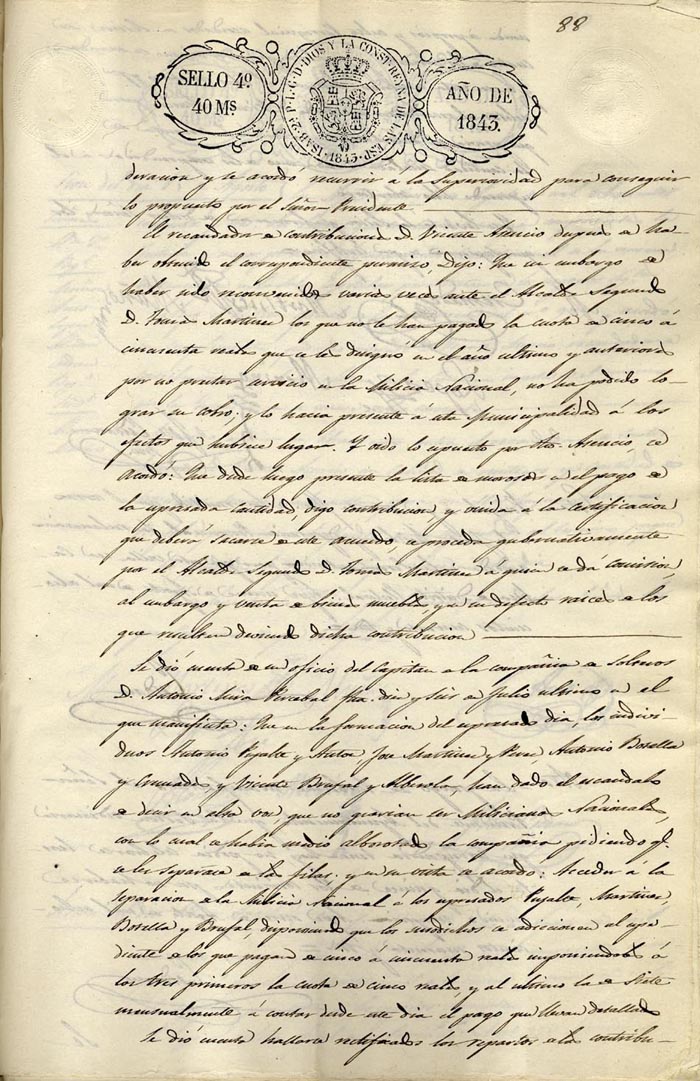 88
SELLO 4º
40 Ms.
ISAB. 2ª P. L. G. D. DIOS Y LA CONST. REYNA DE LAS ESP. 1843.
AÑO DE
1843.
deracion y se acordó recurrir á la Superioridad para conseguir
lo propuesto por el Señor Presidente
El recaudador de contribuciones D. Vicente Asencio despues de ha-
ber obtenido el correspondiente permiso, Dijo: Que sin embargo de
haber sido reconvenidos varias veces ante el Alcalde Segundo
D. Tomas Martinez los que no le han pagado la cuota de cinco á
cincuenta reales que se les designó en el año ultimo y anteriores
por no prestar servicio en la Milicia Nacional, no ha podido lo-
grar su cobro; y lo hacia presente á esta Municipalidad á los
efectos que hubiese lugar. Y oido lo espuesto por dho. Asencio, se
acordó: Que desde luego presente la lista de morosos en el pago de
la espresada cantidad, digo contribucion, y unida á la certificacion
que deberá sacarse de este acuerdo, se proceda gubernativamente
por el Alcalde Segundo D. Tomas Martinez á quien se dá comision,
al embargo y venta de bienes muebles, y en su defecto raices de los
que resulten deviendo dicha contribucion
Se dió cuenta de un oficio del Capitan de la compañia de
D. Antonio Mira Percebal fha. diez y seis de Julio ultimo en el
que manifiesta: Que en la formacion del espresado dia, los indivi-
duos Antonio Pujalte y Antor, Jose Martinez y Perez, Antonio Botella
y Cremades y Vicente Brufal y Alberola, han dado el escandalo
de decir en alta voz que no querian ser Milicianos Nacionales,
con lo cual se habia medio alborotado la compañia pidiendo q.
se les separase de las filas; y en su vista se acordo: Acceder á la
separacion de la Milicia Nacional de los espresados Pujalte, Martinez,
Botella y Brufal, disponiendo que los susodichos se adicionen al espe-
diente de los que pagan de cinco á cincuenta reales imponiendoles á
los tres primeros la cuota de cinco reales, y al ultimo la de siete
mensualmente á contar desde este dia el pago que llevan detallado
Se dió cuenta hallarse rectificados los repartos de la contribu-